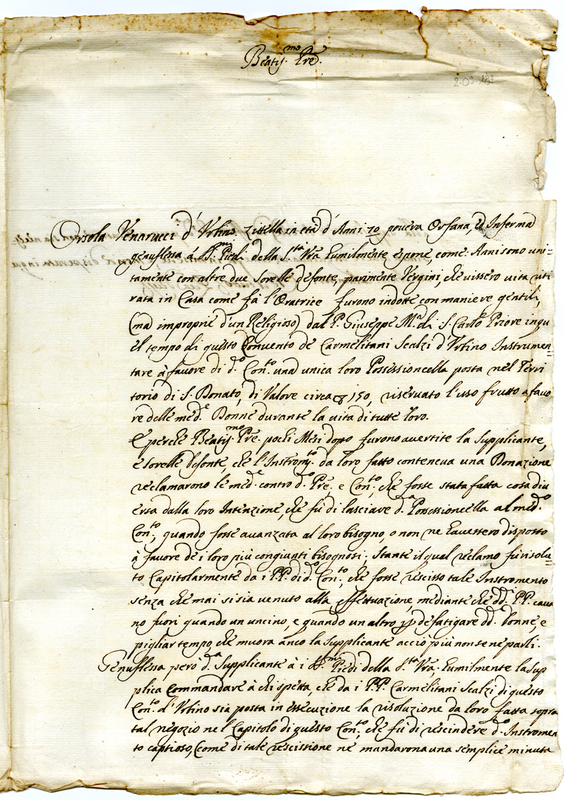 Beatis.mo Pre.
Orsola Venarucci d'Urbino Zittella in età d'Anni 70 povera Orfana, ed Inferma
genuflessa à S.mi Piedi della S.tà Vra humilmente espone, come Anni sono uni=
tamente con altre due Sorelle defonte, parimente Vergini, che vissero vita riti
rata in Casa come fà l'Oratrice furono indotte con maniere gentili,
(ma improprie d'un Religioso) dal P. Giuseppe M.a di S. Carlo Priore in qu
el tempo di questo Convento de Carmelitani Scalzi d'Urbino Instrumen=
tare à favore di d.o Con.to una unica loro Possessioncella posta nel Terri
torio di S. Donato, di Valore circa 150, riservato l'uso frutto à favo
re delle med.e Donne durante la vita di tutte loro.
E perche Beatis.mo Pre. pochi Mesi dopo furono avertite la Supplicante,
e Sorelle defonte, che l'Instrom.to da loro fatto conteneva una Donazione
reclamarono le med.e contro d.o Pre, e Con.to, che fosse stata fatta cosa diu
ersa dalla loro Intenzione che fù di lasciare d.a Possessioncella al med.o
Con.to, quando fosse avanzata al loro bisogno, o non ne havessero disposto
à favore de i loro più congiunti bisognosi. Stante il qual reclamo fù risolu=
to Capitolarmente da i PP. di d.o Con.to che fosse rescisso tale Instromento
senza che mai si sia venuto alla effettuazione mediante che dd. PP. cava
no fuori quando un uncino, e quando un altro p defatigare dd. Donne, e
pigliar tempo, che muora anco la Supplicante acciò più non se ne parli.
Genuflessa però d.a Supplicante à i S.mi Piedi della S.tà Vra, humilmente la Sup
plica Commandare à chi spetta che da i PP. Carmelitani Scalzi di questo
Con.to d'Urbino sia posta in essecuzione la risoluzione da loro fatta sopra
tal negozio nel Capitolo di questo Con.to, che fù di rescindere d.o Instromen
to captioso, come di tale rescissione nè mandarono una semplice minuta